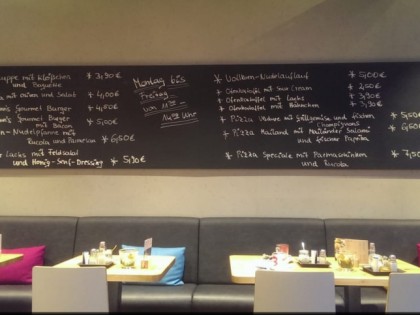 suppe mit Klößchen
und Baguette * 3,90€
mit und Salat * 4,00€
Gourmet Burger * 4,50€
Gourmet Burger
mit Bacon * 5,00€
Nudelpfanne mit
Rucola und Parmesan * 6,50€
Lachs mit Feldsalat
und Honig-Senf-Dressing * 5,90€
Montag bis
Freitag
von
Uhr
* Vollkorn-Nudelauflauf * 5,00€
* Ofenkartoffel mit Sour Cream
* Ofenkartoffel mit Lachs * 3,90€
* Ofenkartoffel mit Hähnchen * 3,90€
* Pizza mit und frischen
Champignons
* Pizza Mailand mit Mailänder Salami
und frischer Paprika
* Pizza Speciale mit Parmaschinken
und Rucola